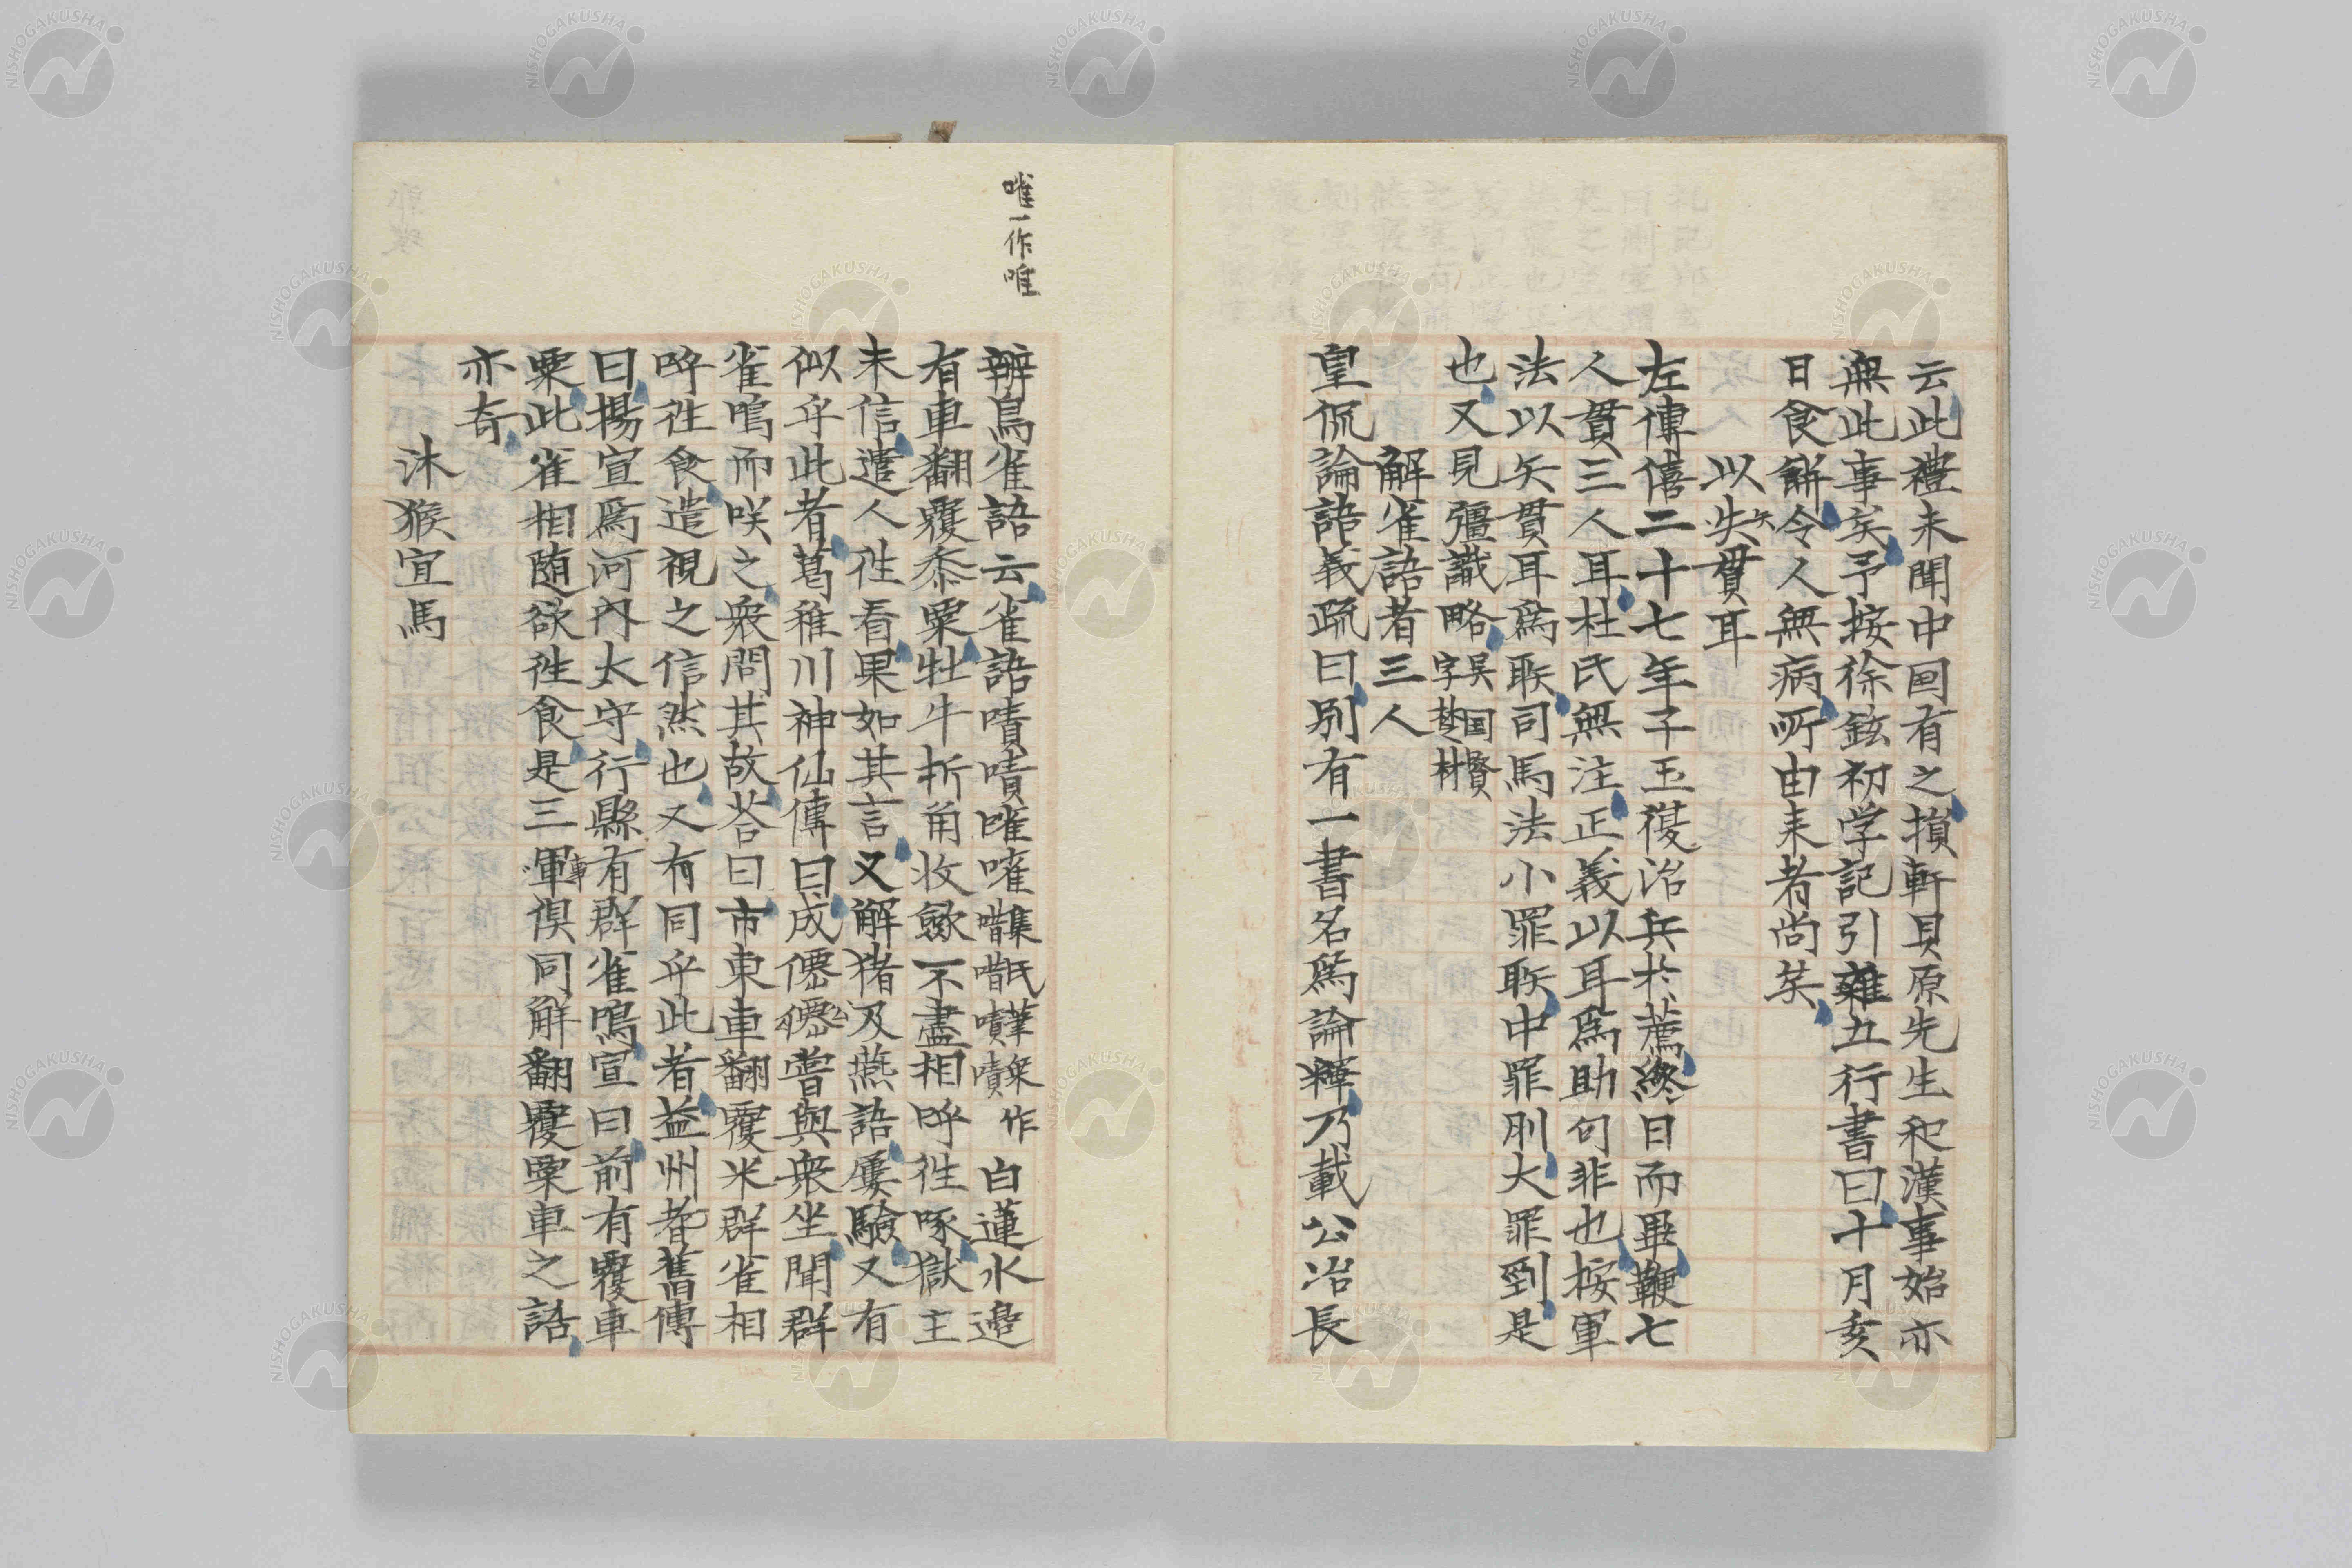 云此禮未聞中国有之損軒貝原先生和漢事始亦
無此事矣予按徐鉉初学記引雜五行書曰十月亥
日食餅令人無病所由来者尚矣
以失矢貫耳
左傳僖二十七年子玉復治兵於蔿終日而畢鞭七
人貫三人耳杜氏無注正義以耳爲助句非也按軍
法以矢貫耳爲聅司馬法小罪聅中罪刖大罪剄是
也又見彊識略吴国賢字楚材
解雀語者三人
皇侃論語義疏曰別有一書名爲論釋乃載公冶長
唯一作唯
辨鳥雀語云雀語嘖嘖唯嗺集氏筆乗作喈喈嘖嘖白蓮水邉
有車翻覆黍粟牡牛折角收斂不盡相呼往啄獄主
未信遣人往看果如其言又解猪及燕語屢驗又有
似乎此者葛稚川神仙傳曰成僊僊嘗與衆坐聞群
雀鳴而咲之衆問其故荅曰市東車翻覆米群雀相
呼往食遣視之信然也又有同乎此者益州耆舊傳
曰揚宣爲河内太守行縣有群雀鳴宣曰前有覆車
粟此雀相随欲往食是三軍事俱同解翻覆粟車之語
亦奇
沐猴宜馬
NISHOGAKUSHA